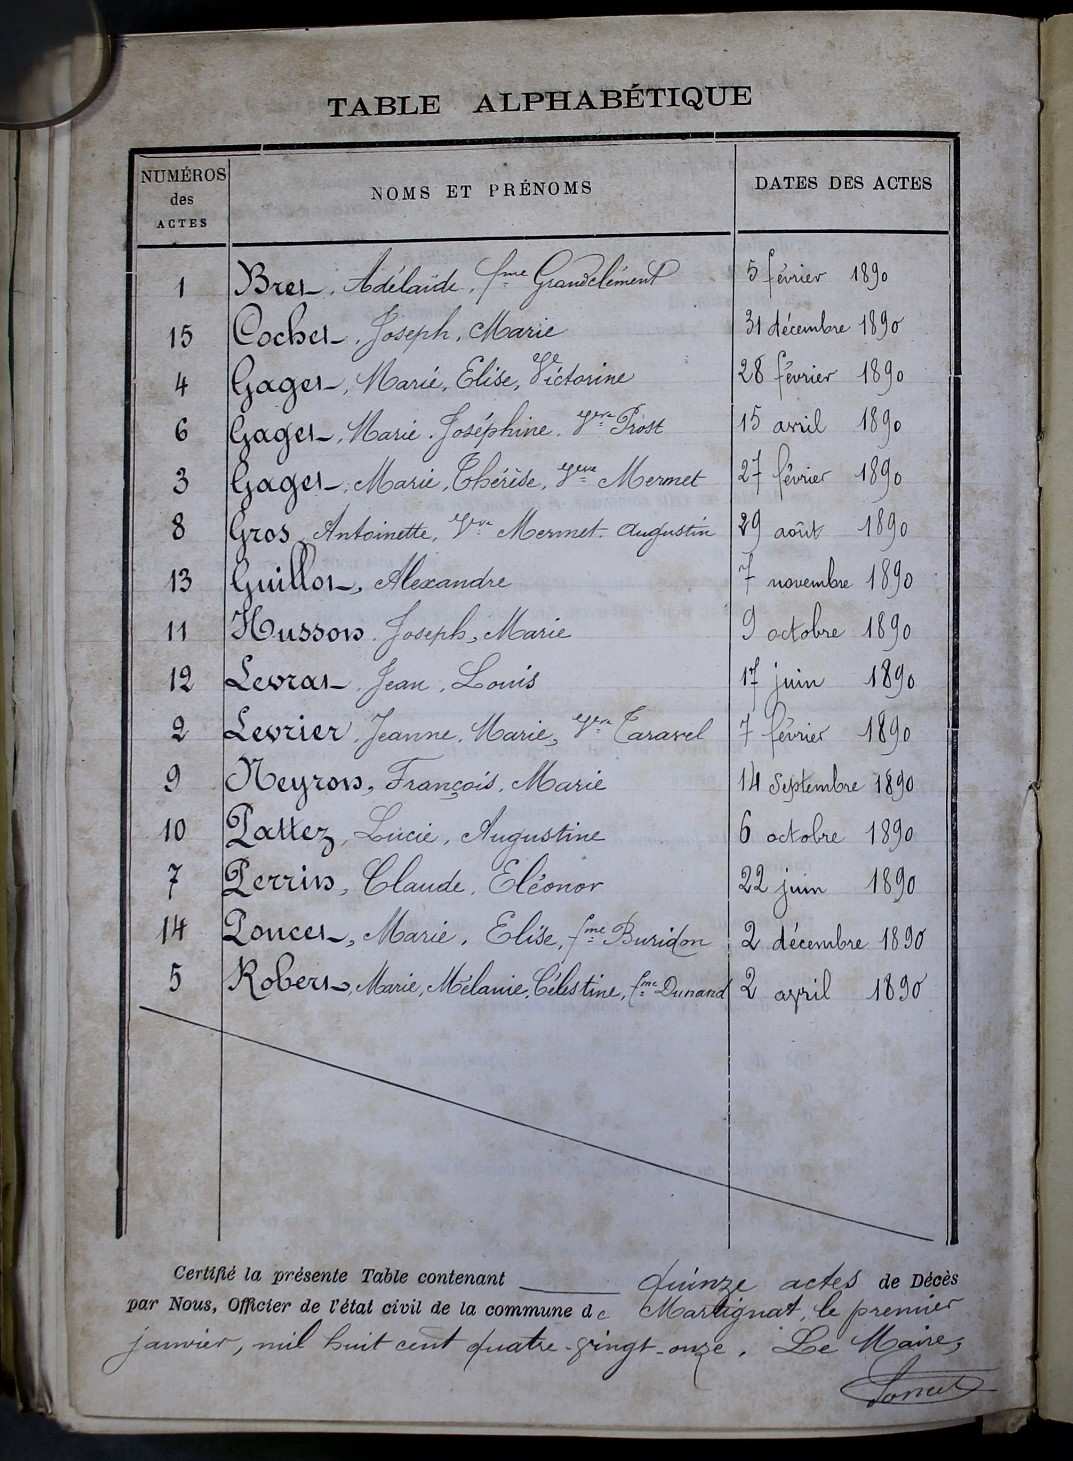 TABLE ALPHABÉTIQUE
NUMÉROS des ACTES NOMS ET PRÉNOMS DATES DES ACTES
1 Bret, Adélaïde, fme Grandclément 5 février 1890
15 Cochet, Joseph, Marie 31 décembre 1890
4 Gaget, Marie, Elise, Victorine 28 février 1890
6 Gaget, Marie, Joséphine, Vve Prost 15 avril 1890
3 Gaget, Marie, Thérèse, Vve Mermet 27 février 1890
8 Gros, Antoinette, Vve Mermet Augustin 29 août 1890
13 Guillot, Alexandre 7 novembre 1890
11 Husson, Joseph, Marie 9 octobre 1890
12 Levrat, Jean, Louis 17 juin 1890
2 Levrier, Jeanne, Marie, Vve Taravel 7 février 1890
9 Neyron, François, Marie 14 Septembre 1890
10 Pattez, Lucie, Augustine 6 octobre 1890
7 Perrin, Claude, Eléonor 22 juin 1890
14 Poncet, Marie, Elise, fme Buridon 2 décembre 1890
5 Robert, Marie, Mélanie, Célestine, fme Dunand 2 avril 1890
Certifié la présente Table contenant quinze actes de Décès
par Nous, Officier de l'état civil de la commune de Martignat, le premier
janvier, mil huit cent quatre-vingt-onze. Le Maire,
Poncet